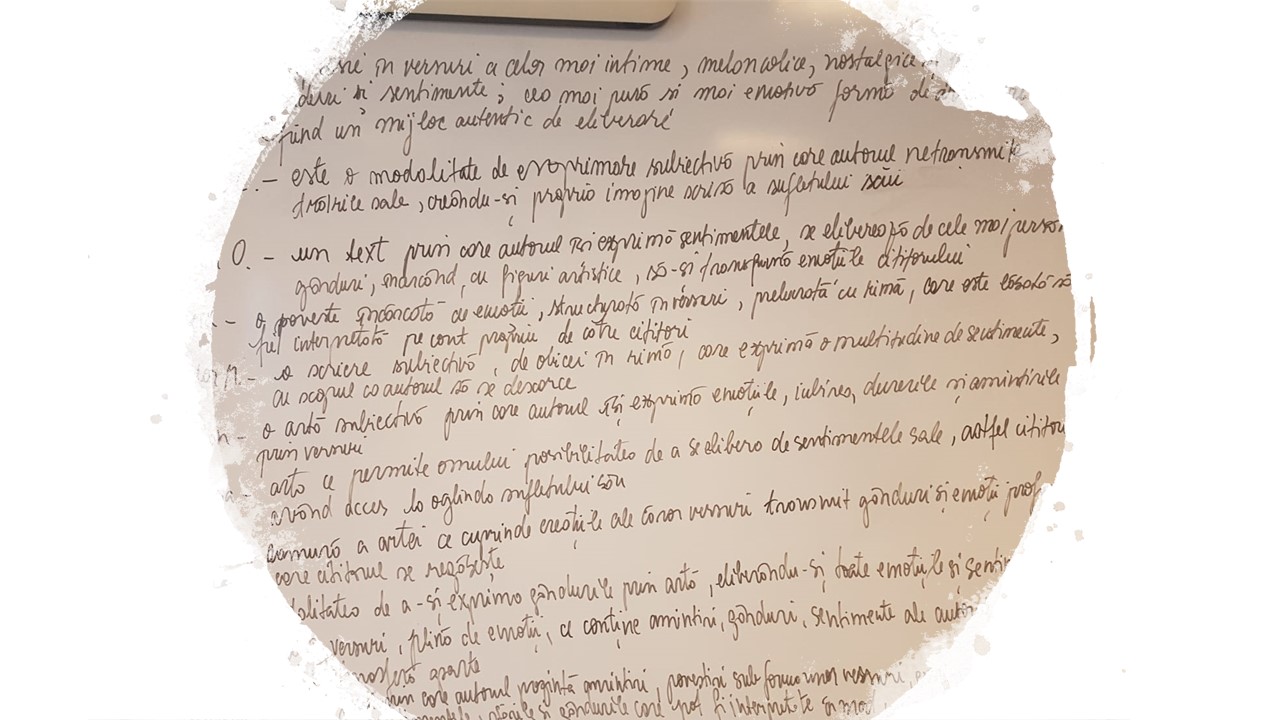 în versuri a celor mai intime, melancolice, nostalgice
și sentimente; cea mai pură și mai emotivă formă de
fiind un mijloc autentic de eliberare
- este o modalitate de exprimare subiectivă prin care autorul
sale, creându-și propria imagine scrisă a sufletului său
O. - un text prin care autorul își exprimă sentimentele, se eliberează de cele mai
gânduri, cu figuri artistice, să-și transpună emoțiile cititorului
- o poveste încărcată de emoții, structurată în versuri, prelucrată cu rimă, care este lăsată să
fie interpretată pe cont propriu de către cititori
- o scriere subiectivă, de obicei în rimă, care exprimă o multitudine de sentimente,
cu scopul ca autorul să se descarce
- o artă subiectivă prin care autorul își exprimă emoțiile, iubirea, durerile și amintirile
prin versuri
artă ce permite omului posibilitatea de a se elibera de sentimentele sale, astfel
având acces la oglinda sufletului său
a artei ce cuprinde creațiile ale căror versuri transmit gânduri și emoții
care cititorul se regăsește
de a-și exprima gândurile prin artă, eliberându-și toate emoțiile și
versuri, plină de emoții, ce conține amintiri, gânduri, sentimente ale
aparte
care autorul prezintă amintiri, povestiri sub forma unor versuri,
și gândurile care pot fi interpretate